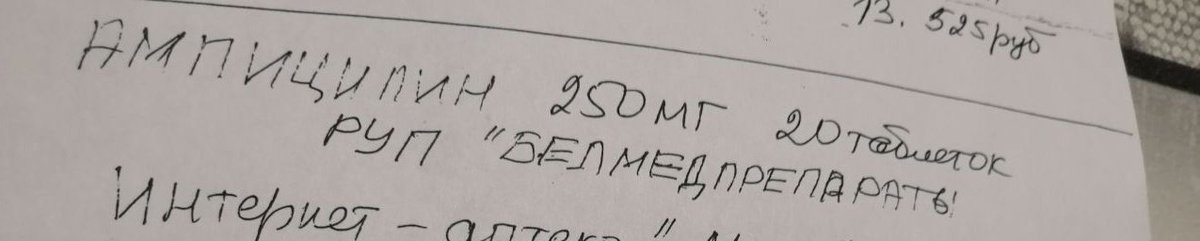 13. 525руб
АМПИЦИЛИН 250МГ 20таблеток
РУП "БЕЛМЕДПРЕПАРАТЫ
Интернет - аптека "